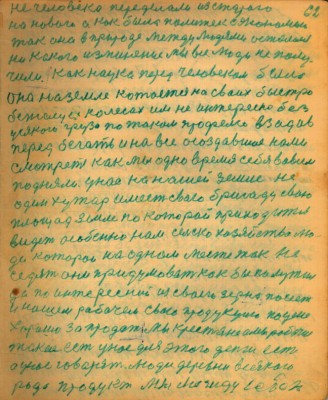 не человека переделали из старого
на нового а как было политек экономых
так оно в природе между людями осталося
ни какого изминение мы все люди не полу-
чили, как наука перед человеком была
она на земле котается на своих быстро
бегающих колесах им не интересно без
всякого груза по таком профелю взад в
перед бегать и на все создавшое нами
смотрет как мы одно время себя вовсем
подняли, у нас на нашей земле не
один хутар имеет своего бригаду свою
площад земли по которой приходится
видет особенно нам сельско хозяйство лю-
ди которой на одном месте так не
сидят они придумоват как бы получит
да по интересней из своего зерно, посеет
и нашем рабочем свою продукцию
хорошо за продат, мы крестьяне мы рабочие
такое ест у нас для этого денги ест
о нас говорят люди деревни всякого
рода продукт мы между себя